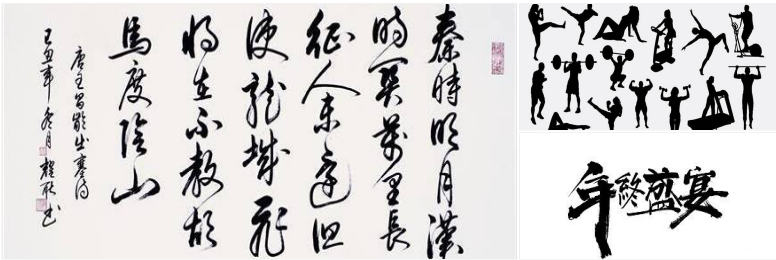 秦時明月漢
時關萬里長
征人未還但
使龍城飛
將在不教胡
馬度陰山
唐王昌齡出塞詩
己丑年冬月書
年終盛宴